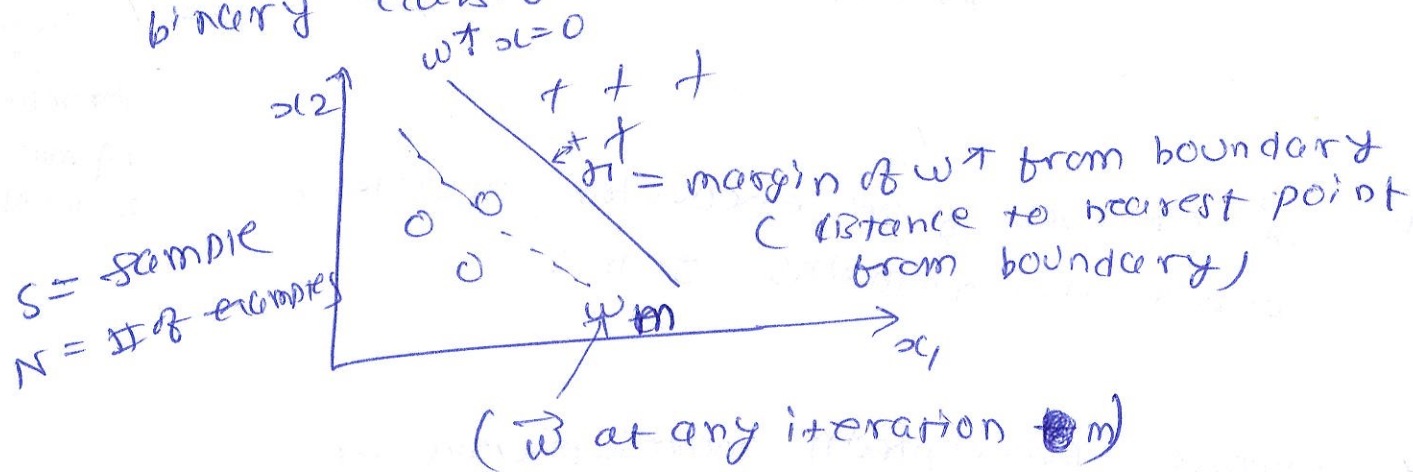 binary
w^T x = 0
x2
+ + +
+ +
r = margin of w^T from boundary
( distance to nearest point
from boundary)
O O
O
S = sample
N = # of examples
w m
x1
( w⃗ at any iteration m)